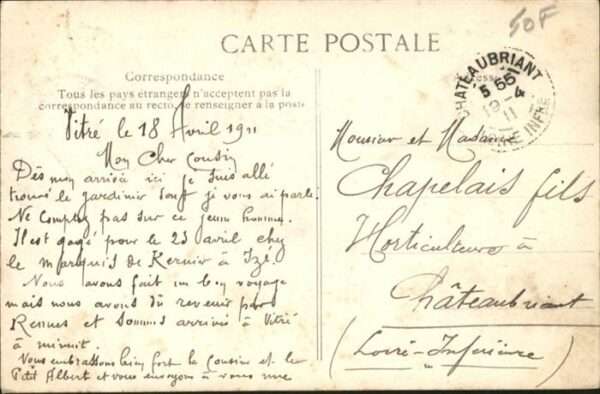 50F
CARTE POSTALE
Correspondance
Tous les pays étrangers n'acceptent pas la
correspondance au recto, se renseigner à la poste
Vitré le 18 Avril 1911
Mon Cher Cousin
Dès mon arrivée ici je suis allé
trouvé le jardinier dont je vous ai parlé.
Ne comptez pas sur ce jeune homme.
Il est gagé pour le 23 avril chez
le marquis de Kernier à Izé.
Nous avons fait un bon voyage
mais nous avons dû revenir par
Rennes et sommes arrivés à Vitré
à minuit.
Vous embrassons bien fort le cousin et le
Petit Albert et vous envoyons à vous une
CHATEAUBRIANT
5 55
-4
11
INFRE
Monsieur et Madame
Chapelais fils
Horticulteurs à
Châteaubriant
(Loire-Inférieure)